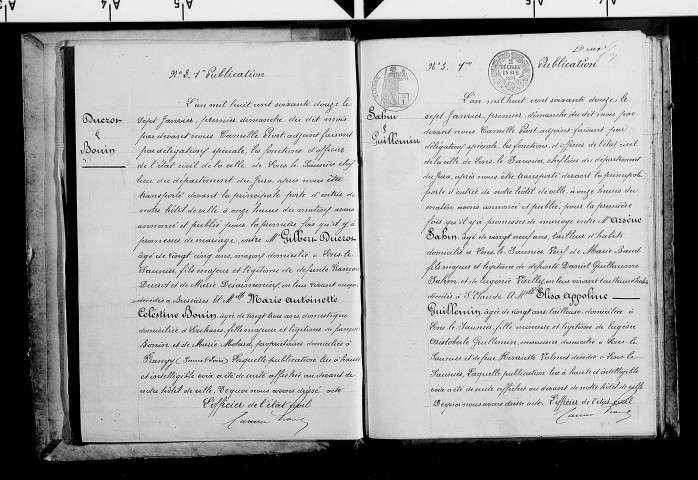 N° 2. 1re Publication
Ducrot
&
Bonin
L'an mil huit cent soixante douze le
sept Janvier, premier dimanche du dit mois
par devant nous Camille Prost, adjoint faisant
par délégation spéciale, les fonctions d'officier
de l'état civil de la ville de Lons le Saunier chef
lieu du département du Jura, après nous être
transporté devant la principale porte d'entrée de
notre hôtel de ville à onze heures du matin, avons
annoncé et publié pour la première fois qu'il y a
promesses de mariage, entre Mr Gilbert Ducrot
âgé de vingt cinq ans, maçon domicilié à Lons le
Saunier, fils majeur et légitime de défunts François
Ducrot et de Marie, en leur vivant
décédés à Bussières Et Melle Marie Antoinette
Célestine Bonin, âgée de vingt trois ans, domestique
domiciliée à Louhans, fille majeure et légitime de
Bonin et de Marie, propriétaires domiciliés à
(Saône & Loire) Laquelle publication lue à haute
et intelligible voix a été de suite affichée au devant de
notre hôtel de ville. De quoi nous avons dressé acte
L'officier de l'état civil
N° 3. 1re Publication
Sahm
&
Guillemin
L'an mil huit cent soixante douze, le
sept Janvier, premier dimanche du dit mois par
devant nous Camille Prost, adjoint faisant par
délégation spéciale, les fonctions d'officier de l'état civil
de la ville de Lons le Saunier, chef lieu du département
du Jura, après nous être transporté devant la principale
porte d'entrée de notre hôtel de ville, à onze heures du
matin avons annoncé et publié, pour la première
fois qu'il y a promesses de mariage entre Mr Arsène
Sahm, âgé de vingt neuf ans, tailleur d'habits
domicilié à Lons le Saunier Veuf de Marie Baud
fils majeur et légitime de défunts Daniel Guillaume
Sahm et de Eugénie Vuilly, en leur vivant tailleur d'habits
décédés à St Claude Et Melle Elisa Appoline
Guillemin, âgée de vingt ans, tailleuse, domiciliée à
Lons le Saunier, fille mineure et légitime de Eugène
Guillemin, menuisier domicilié à Lons le
Saunier et de feue Henriette décédée à Lons le
Saunier. Laquelle publication lue à haute et intelligible
voix a été de suite affichée au devant de notre hôtel de ville
De quoi nous avons dressé acte. L'officier de l'état civil